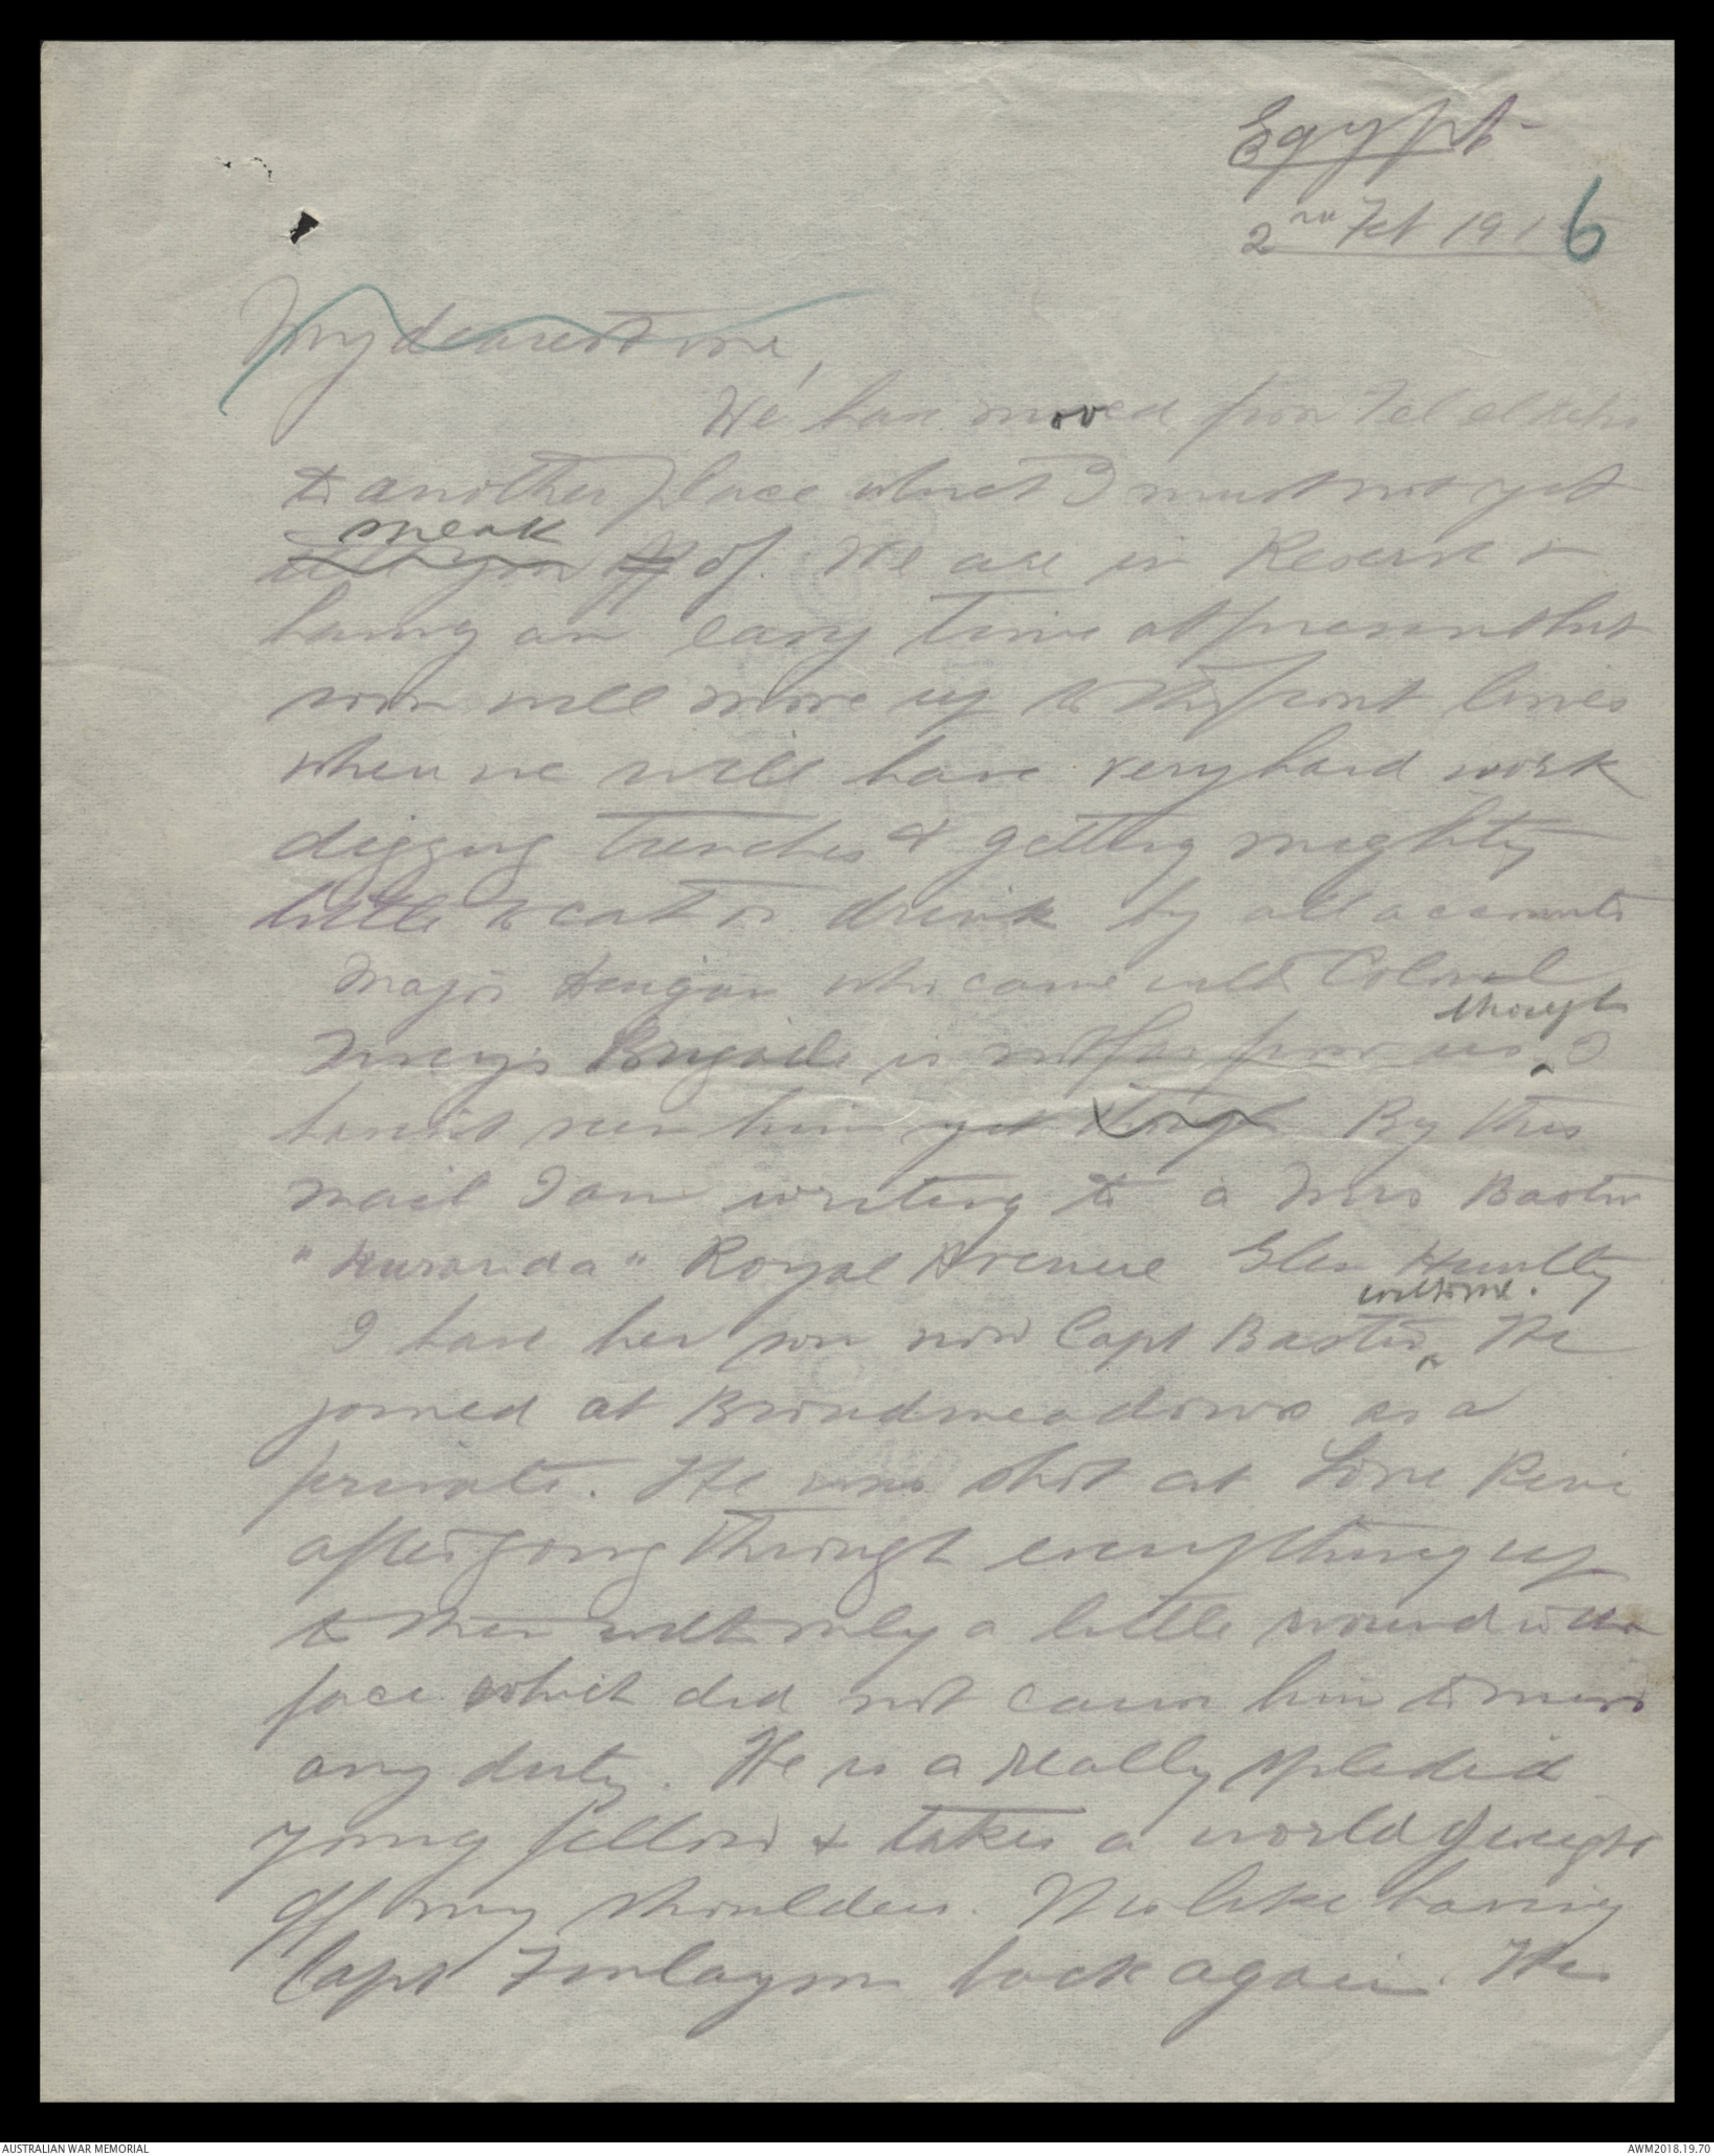 Egypt
2nd Feb 1916
My dearest one,
We have moved from Tel el Kebir
to another place which I must not yet
speak
tell you of. We are in Reserve &
having an easy time at present but
soon will move up to the front lines
when we will have very hard work
digging trenches & getting mighty
little to eat or drink by all accounts
Major who came with Colonel
though
Brigade is not far from us, I
haven't seen him yet though By this
mail I am writing to a Mrs
"Kuranda" Royal Avenue Glen Huntly
with me.
I have her son now Capt He
joined at Broadmeadows as a
private. He was shot at Lone Pine
after going through everything up
to then with only a little wound in the
face which did not cause him to miss
any duty. He is a really spledid
young fellow & takes a world of weight
off my shoulders. It is like having
Capt Finlayson back again. He
AUSTRALIAN WAR MEMORIAL
AWM2018.19.70